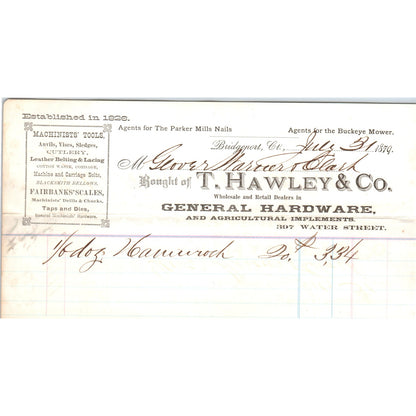 Established in 1826.
MACHINISTS' TOOLS,
Anvils, Vises, Sledges,
CUTLERY,
Leather Belting & Lacing
COTTON WASTE, CORDAGE,
Machine and Carriage Bolts,
BLACKSMITH BELLOWS,
FAIRBANKS' SCALES,
Machinists' Drills & Chucks,
Taps and Dies,
General Machinists' Hardware.
Agents for The Parker Mills Nails
Agents for the Buckeye Mower.
Bridgeport, Ct., July 31 1879.
M Glover Warner & Clark
Bought of T. HAWLEY & CO.
Wholesale and Retail Dealers in
GENERAL HARDWARE,
AND AGRICULTURAL IMPLEMENTS.
397 WATER STREET.
doz 3,34